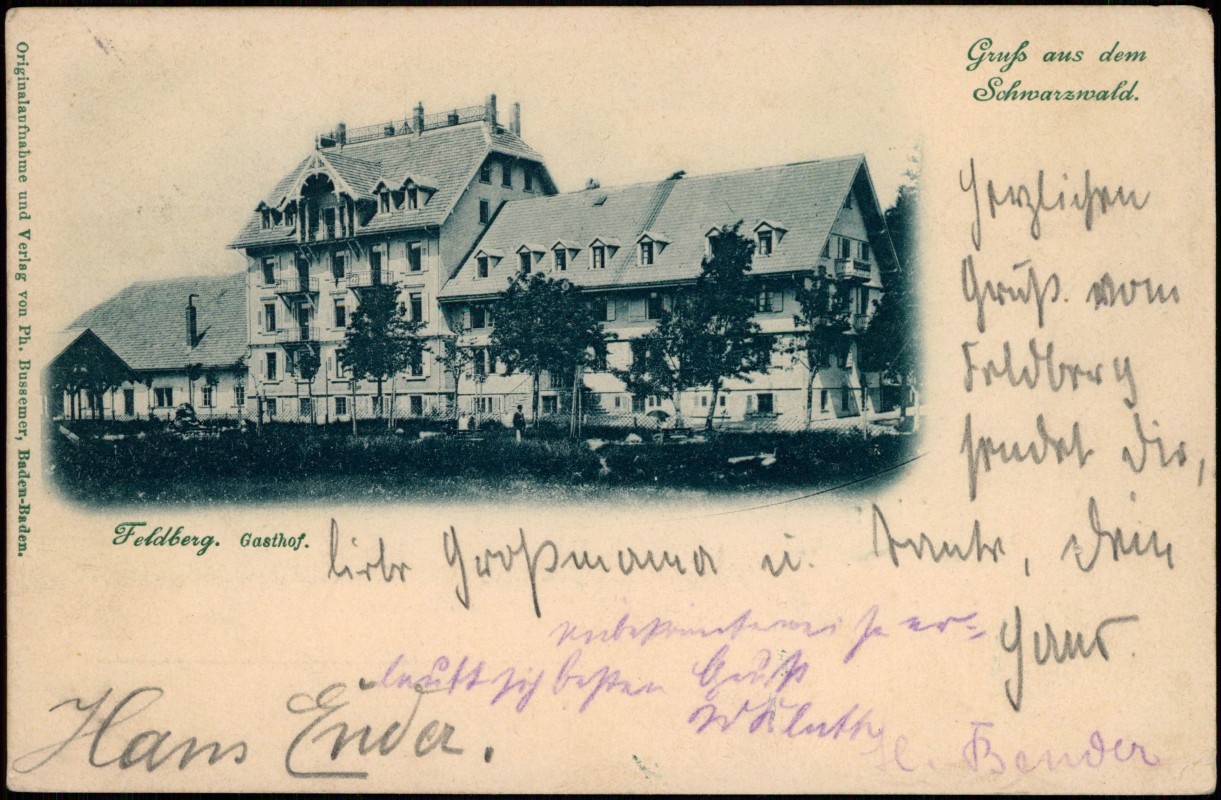 Gruß aus dem
Schwarzwald.
Originalaufnahme und Verlag von Ph. Bussemer, Baden-Baden.
Feldberg. Gasthof.
Herzlichen
Gruß vom
Feldberg
sendet Dir,
liebe Großmama u. Tante, Dein
Hans.
unbekannterweise er-
laubt sich besten Gruß
Hans Ender.
H. Bender